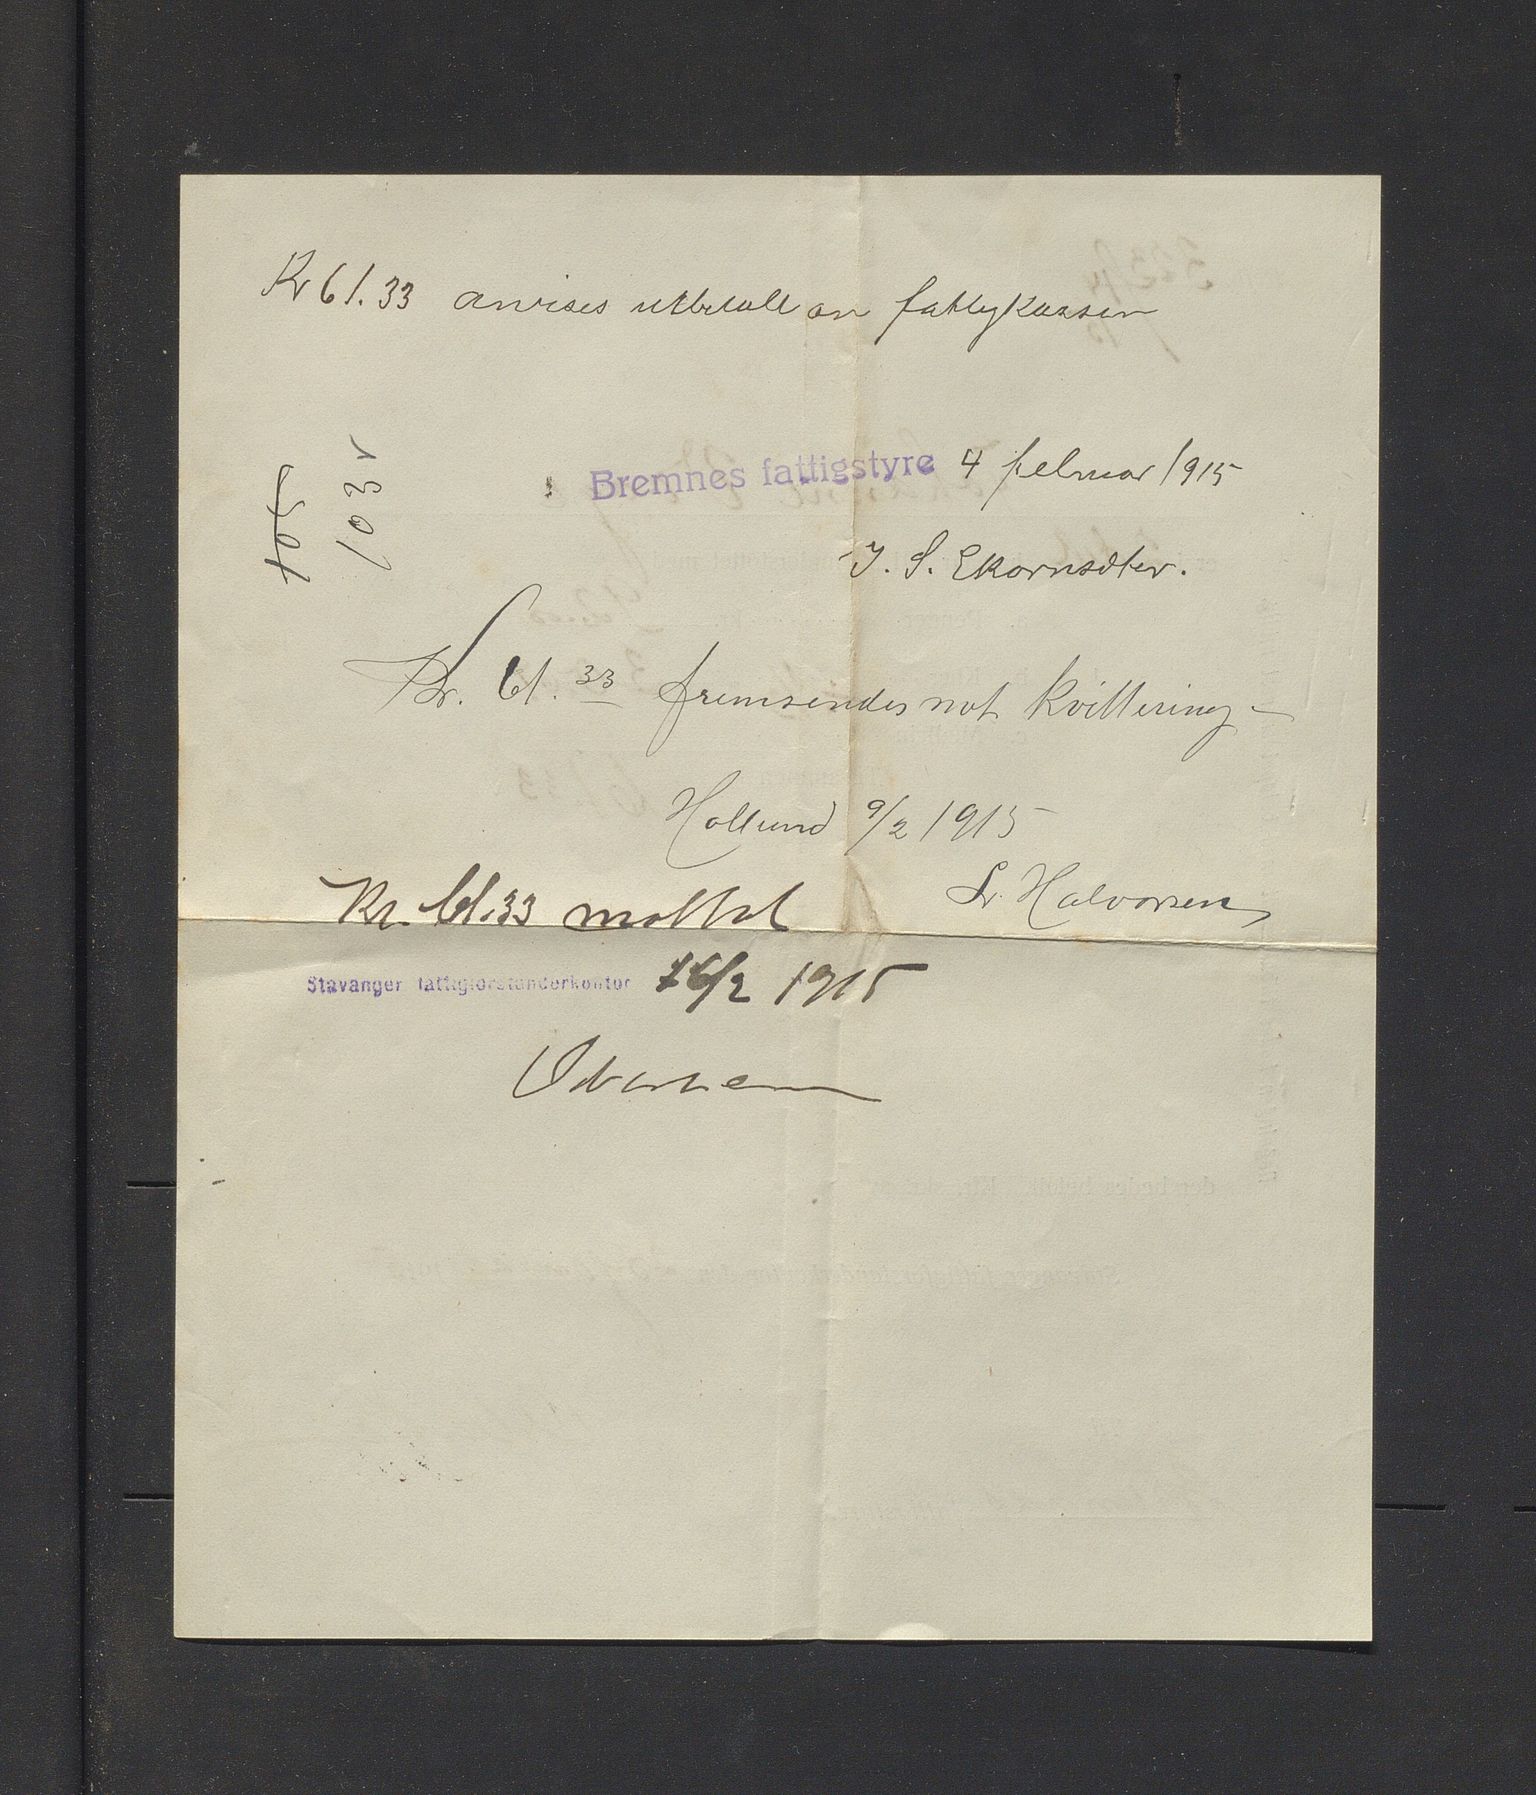 Kr 61.33 anvises utbetalt av fattigkassen
Bremnes fattigstyre 4 februar 1915
J. S. Ekornsæter.
103
Kr. 61.33 fremsendes mot kvittering
Hollund 9/2 1915
Halvorsen
Kr. 61.33 mottat
Stavanger fattigforstanderkontor 16/2 1915